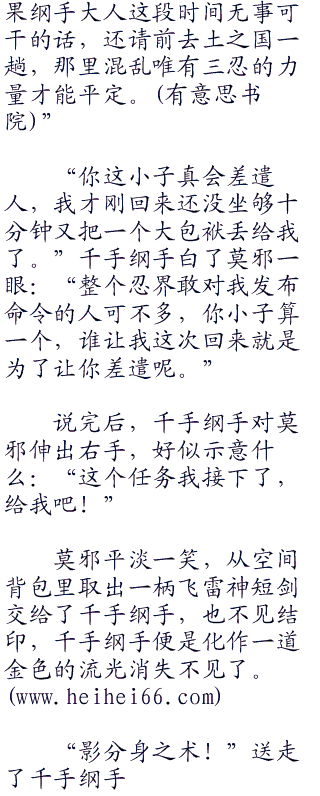 果纲手大人这段时间无事可
干的话，还请前去土之国一
趟，那里混乱唯有三忍的力
量才能平定。(有意思书
院)”
“你这小子真会差遣
人，我才刚回来还没坐够十
分钟又把一个大包袱丢给我
了。”千手纲手白了莫邪一
眼：“整个忍界敢对我发布
命令的人可不多，你小子算
一个，谁让我这次回来就是
为了让你差遣呢。”
说完后，千手纲手对莫
邪伸出右手，好似示意什
么：“这个任务我接下了，
给我吧！”
莫邪平淡一笑，从空间
背包里取出一柄飞雷神短剑
交给了千手纲手，也不见结
印，千手纲手便是化作一道
金色的流光消失不见了。
(www.heihei66.com)
“影分身之术！”送走
了千手纲手